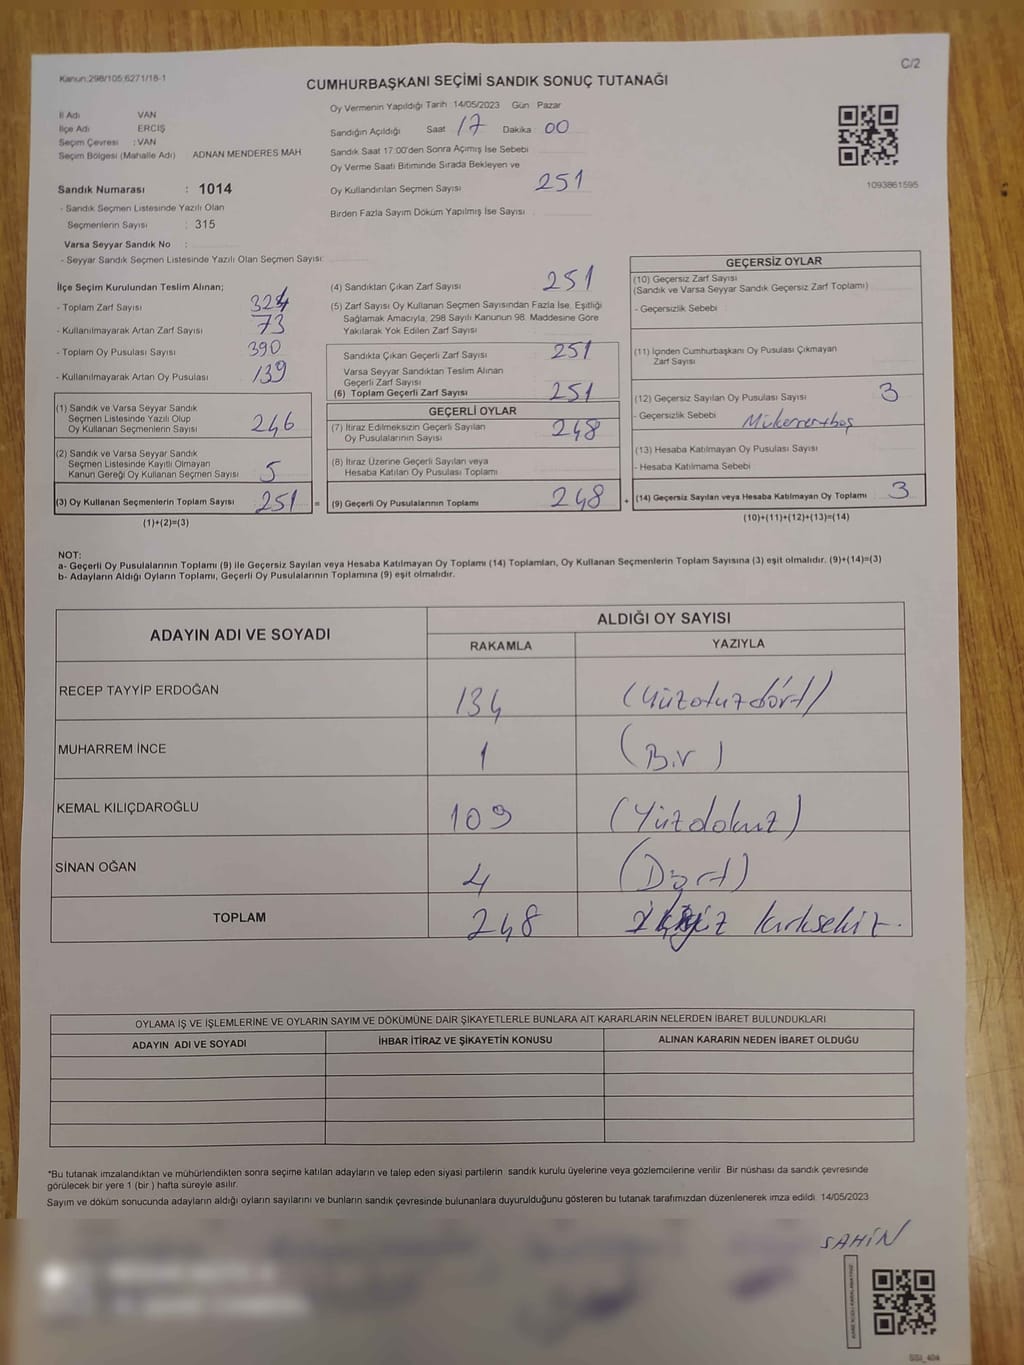 Kanun:298/105:6271/18-1
C/2
CUMHURBAŞKANI SEÇİMİ SANDIK SONUÇ TUTANAĞI
İl Adı VAN
İlçe Adı ERCİŞ
Seçim Çevresi : VAN
Seçim Bölgesi (Mahalle Adı) ADNAN MENDERES MAH
Sandık Numarası : 1014
- Sandık Seçmen Listesinde Yazılı Olan
Seçmenlerin Sayısı : 315
Varsa Seyyar Sandık No :
- Seyyar Sandık Seçmen Listesinde Yazılı Olan Seçmen Sayısı:
Oy Vermenin Yapıldığı Tarih 14/05/2023 Gün Pazar
Sandığın Açıldığı Saat 17 Dakika 00
Sandık Saat 17:00'den Sonra Açımış İse Sebebi
Oy Verme Saati Bitiminde Sırada Bekleyen ve
Oy Kullandırılan Seçmen Sayısı 251
Birden Fazla Sayım Döküm Yapılmış İse Sayısı
1093861595
İlçe Seçim Kurulundan Teslim Alınan;
- Toplam Zarf Sayısı 324
- Kullanılmayarak Artan Zarf Sayısı 73
- Toplam Oy Pusulası Sayısı 390
- Kullanılmayarak Artan Oy Pusulası 139
(1) Sandık ve Varsa Seyyar Sandık
Seçmen Listesinde Yazılı Olup
Oy Kullanan Seçmenlerin Sayısı 246
(2) Sandık ve Varsa Seyyar Sandık
Seçmen Listesinde Kayıtlı Olmayan
Kanun Gereği Oy Kullanan Seçmen Sayısı 5
(3) Oy Kullanan Seçmenlerin Toplam Sayısı 251 =
(1)+(2)=(3)
(4) Sandıktan Çıkan Zarf Sayısı 251
(5) Zarf Sayısı Oy Kullanan Seçmen Sayısından Fazla İse, Eşitliği
Sağlamak Amacıyla, 298 Sayılı Kanunun 98. Maddesine Göre
Yakılarak Yok Edilen Zarf Sayısı
Sandıkta Çıkan Geçerli Zarf Sayısı 251
Varsa Seyyar Sandıktan Teslim Alınan
Geçerli Zarf Sayısı
(6) Toplam Geçerli Zarf Sayısı 251
GEÇERLİ OYLAR
(7) İtiraz Edilmeksizin Geçerli Sayılan
Oy Pusulalarının Sayısı 248
(8) İtiraz Üzerine Geçerli Sayılan veya
Hesaba Katılan Oy Pusulası Toplamı
(9) Geçerli Oy Pusulalarının Toplamı 248 +
GEÇERSİZ OYLAR
(10) Geçersiz Zarf Sayısı
(Sandık ve Varsa Seyyar Sandık Geçersiz Zarf Toplamı)
- Geçersizlik Sebebi
(11) İçinden Cumhurbaşkanı Oy Pusulası Çıkmayan
Zarf Sayısı
(12) Geçersiz Sayılan Oy Pusulası Sayısı 3
- Geçersizlik Sebebi Mükerrer+boş
(13) Hesaba Katılmayan Oy Pusulası Sayısı
- Hesaba Katılmama Sebebi
(14) Geçersiz Sayılan veya Hesaba Katılmayan Oy Toplamı 3
(10)+(11)+(12)+(13)=(14)
NOT:
a- Geçerli Oy Pusulalarının Toplamı (9) ile Geçersiz Sayılan veya Hesaba Katılmayan Oy Toplamı (14) Toplamları, Oy Kullanan Seçmenlerin Toplam Sayısına (3) eşit olmalıdır. (9)+(14)=(3)
b- Adayların Aldığı Oyların Toplamı, Geçerli Oy Pusulalarının Toplamına (9) eşit olmalıdır.
ADAYIN ADI VE SOYADI
ALDIĞI OY SAYISI
RAKAMLA YAZIYLA
RECEP TAYYİP ERDOĞAN 134 (Yüzotuzdört)
MUHARREM İNCE 1 (Bir)
KEMAL KILIÇDAROĞLU 109 (Yüzdokuz)
SİNAN OĞAN 4 (Dört)
TOPLAM 248 kırksekiz.
OYLAMA İŞ VE İŞLEMLERİNE VE OYLARIN SAYIM VE DÖKÜMÜNE DAİR ŞİKAYETLERLE BUNLARA AİT KARARLARIN NELERDEN İBARET BULUNDUKLARI
ADAYIN ADI VE SOYADI İHBAR İTİRAZ VE ŞİKAYETİN KONUSU ALINAN KARARIN NEDEN İBARET OLDUĞU
*Bu tutanak imzalandıktan ve mühürlendikten sonra seçime katılan adayların ve talep eden siyasi partilerin sandık kurulu üyelerine veya gözlemcilerine verilir. Bir nüshası da sandık çevresinde
görülecek bir yere 1 (bir) hafta süreyle asılır.
Sayım ve döküm sonucunda adayların aldığı oyların sayılarını ve bunların sandık çevresinde bulunanlara duyurulduğunu gösteren bu tutanak tarafımızdan düzenlenerek imza edildi. 14/05/2023
SAHİN
SSI_404